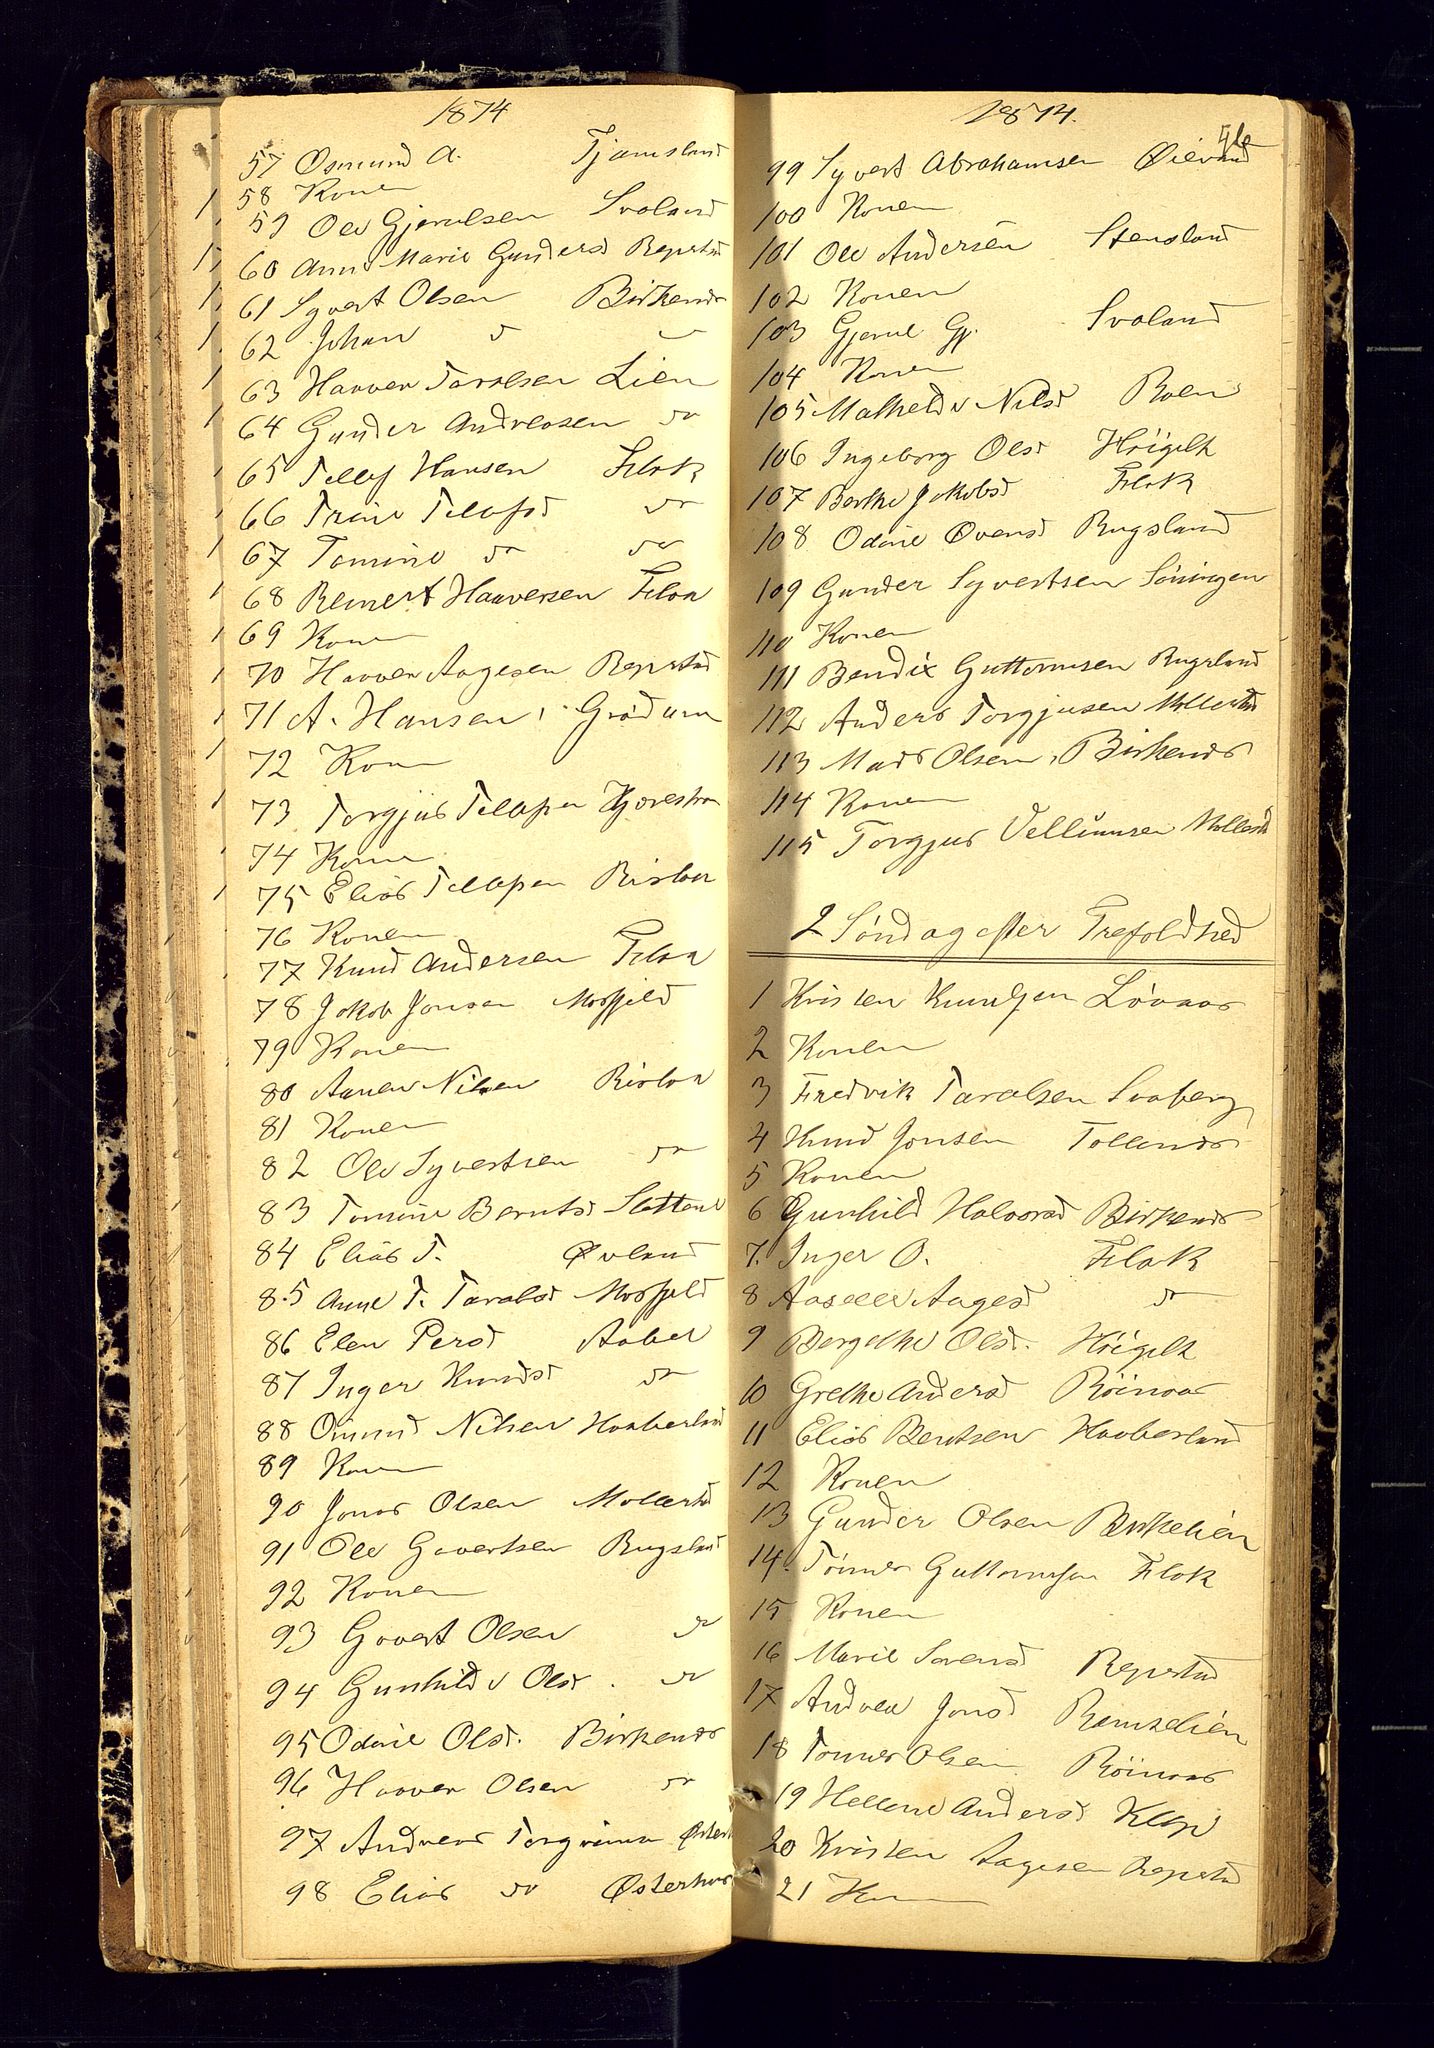 1874
57 Osmund A. Tjamsland
58 Konen
59 Ole Gjerulsen Svaland
60 Anne Marie Gunders Repstad
61 Syvert Olsen Birkenes
62 Johan do do
63 Haaver Taralsen Lien
64 Gunder Andreasen do
65 Tellef Hansen Flak
66 Trine Tellefsd do
67 Tomine do do
68 Reinert Haaversen Flaa
69 Konen
70 Haaver Aagesen Repstad
71 A. Hansen, Grødum
72 Kone
73 Torgjus Tellefsen
74 Kone
75 Elias Tellefsen Risløa
76 Konen
77 Knud Andersen Flaa
78 Jakob Jonsen Mosfjeld
79 Konen
80 Aanen Nilsen Risløa
81 Konen
82 Ole Syvertsen do
83 Tomine Berntsd Slettene
84 Elias T. Øvland
85 Anne T. Taralsd Mosfjeld
86 Elen Persd Aabel
87 Inger Knudsd do
88 Omund Nilsen Haaberland
89 Kone
90 Jonas Olsen Mollestad
91 Ole Govertsen Rugsland
92 Konen
93 Govert Olsen do
94 Gunhilde Olsd. do
95 Odine Olsd. Birkenes
96 Haaver Olsen do
97 Andreas Torgrimsen
98 Elias do Østerhus
1874.
99 Syvert Abrahamsen
100 Konen
101 Ole Andersen Stensland
102 Konen
103 Gjerul Gj. Svaland
104 Konen
105 Mathilde Nilsd Roen
106 Ingeborg Olsd Høigilt
107 Berthe Jakobsd Flak
108 Odine Øvensd Rugsland
109 Gunder Syvertsen Søningen
110 Konen
111 Bendix Guttormsen Rugsland
112 Anders Torgjusen Mollestad
113 Mads Olsen, Birkenes
114 Konen
115 Torgjus Vellumsen Mollestad
2 Søndag efter Trefoldhed
1 Kristen Knudsen Løvaas
2 Konen
3 Fredrik Taralsen Svaberg
4 Knud Jonsen Tollenes
5 Konen
6 Gunhild Halvorsd Birkenes
7. Inger O. Flak
8 Aasille Aagesd do
9 Bergithe Olsd. Høigilt
10 Grethe Andersd Røinaas
11 Elias Bentsen Haaberland
12 Konen
13 Gunder Olsen Birkelien
14. Tønnes Guttormsen Flak
15 Konen
16 Marie Sørensd Repstad
17 Andrea Jonsd Ramselien
18 Tønnes Olsen Røinaas
19 Hellene Andersd Klepi
20 Kristen Aagesen Repstad
21 Kone